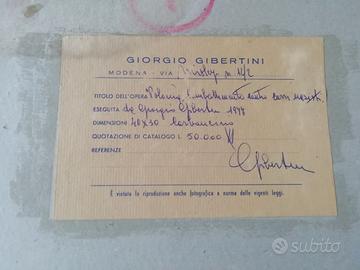 GIORGIO GIBERTINI
MODENA - VIA n. 11/2
TITOLO DELL'OPERA Polonia
ESEGUITA da Giorgio Gibertini 1977
DIMENSIONI 40X30 Carboncino
QUOTAZIONE DI CATALOGO L. 50.000
REFERENZE
Gibertini
È vietata la riproduzione anche fotografica a norma delle vigenti leggi.
subito